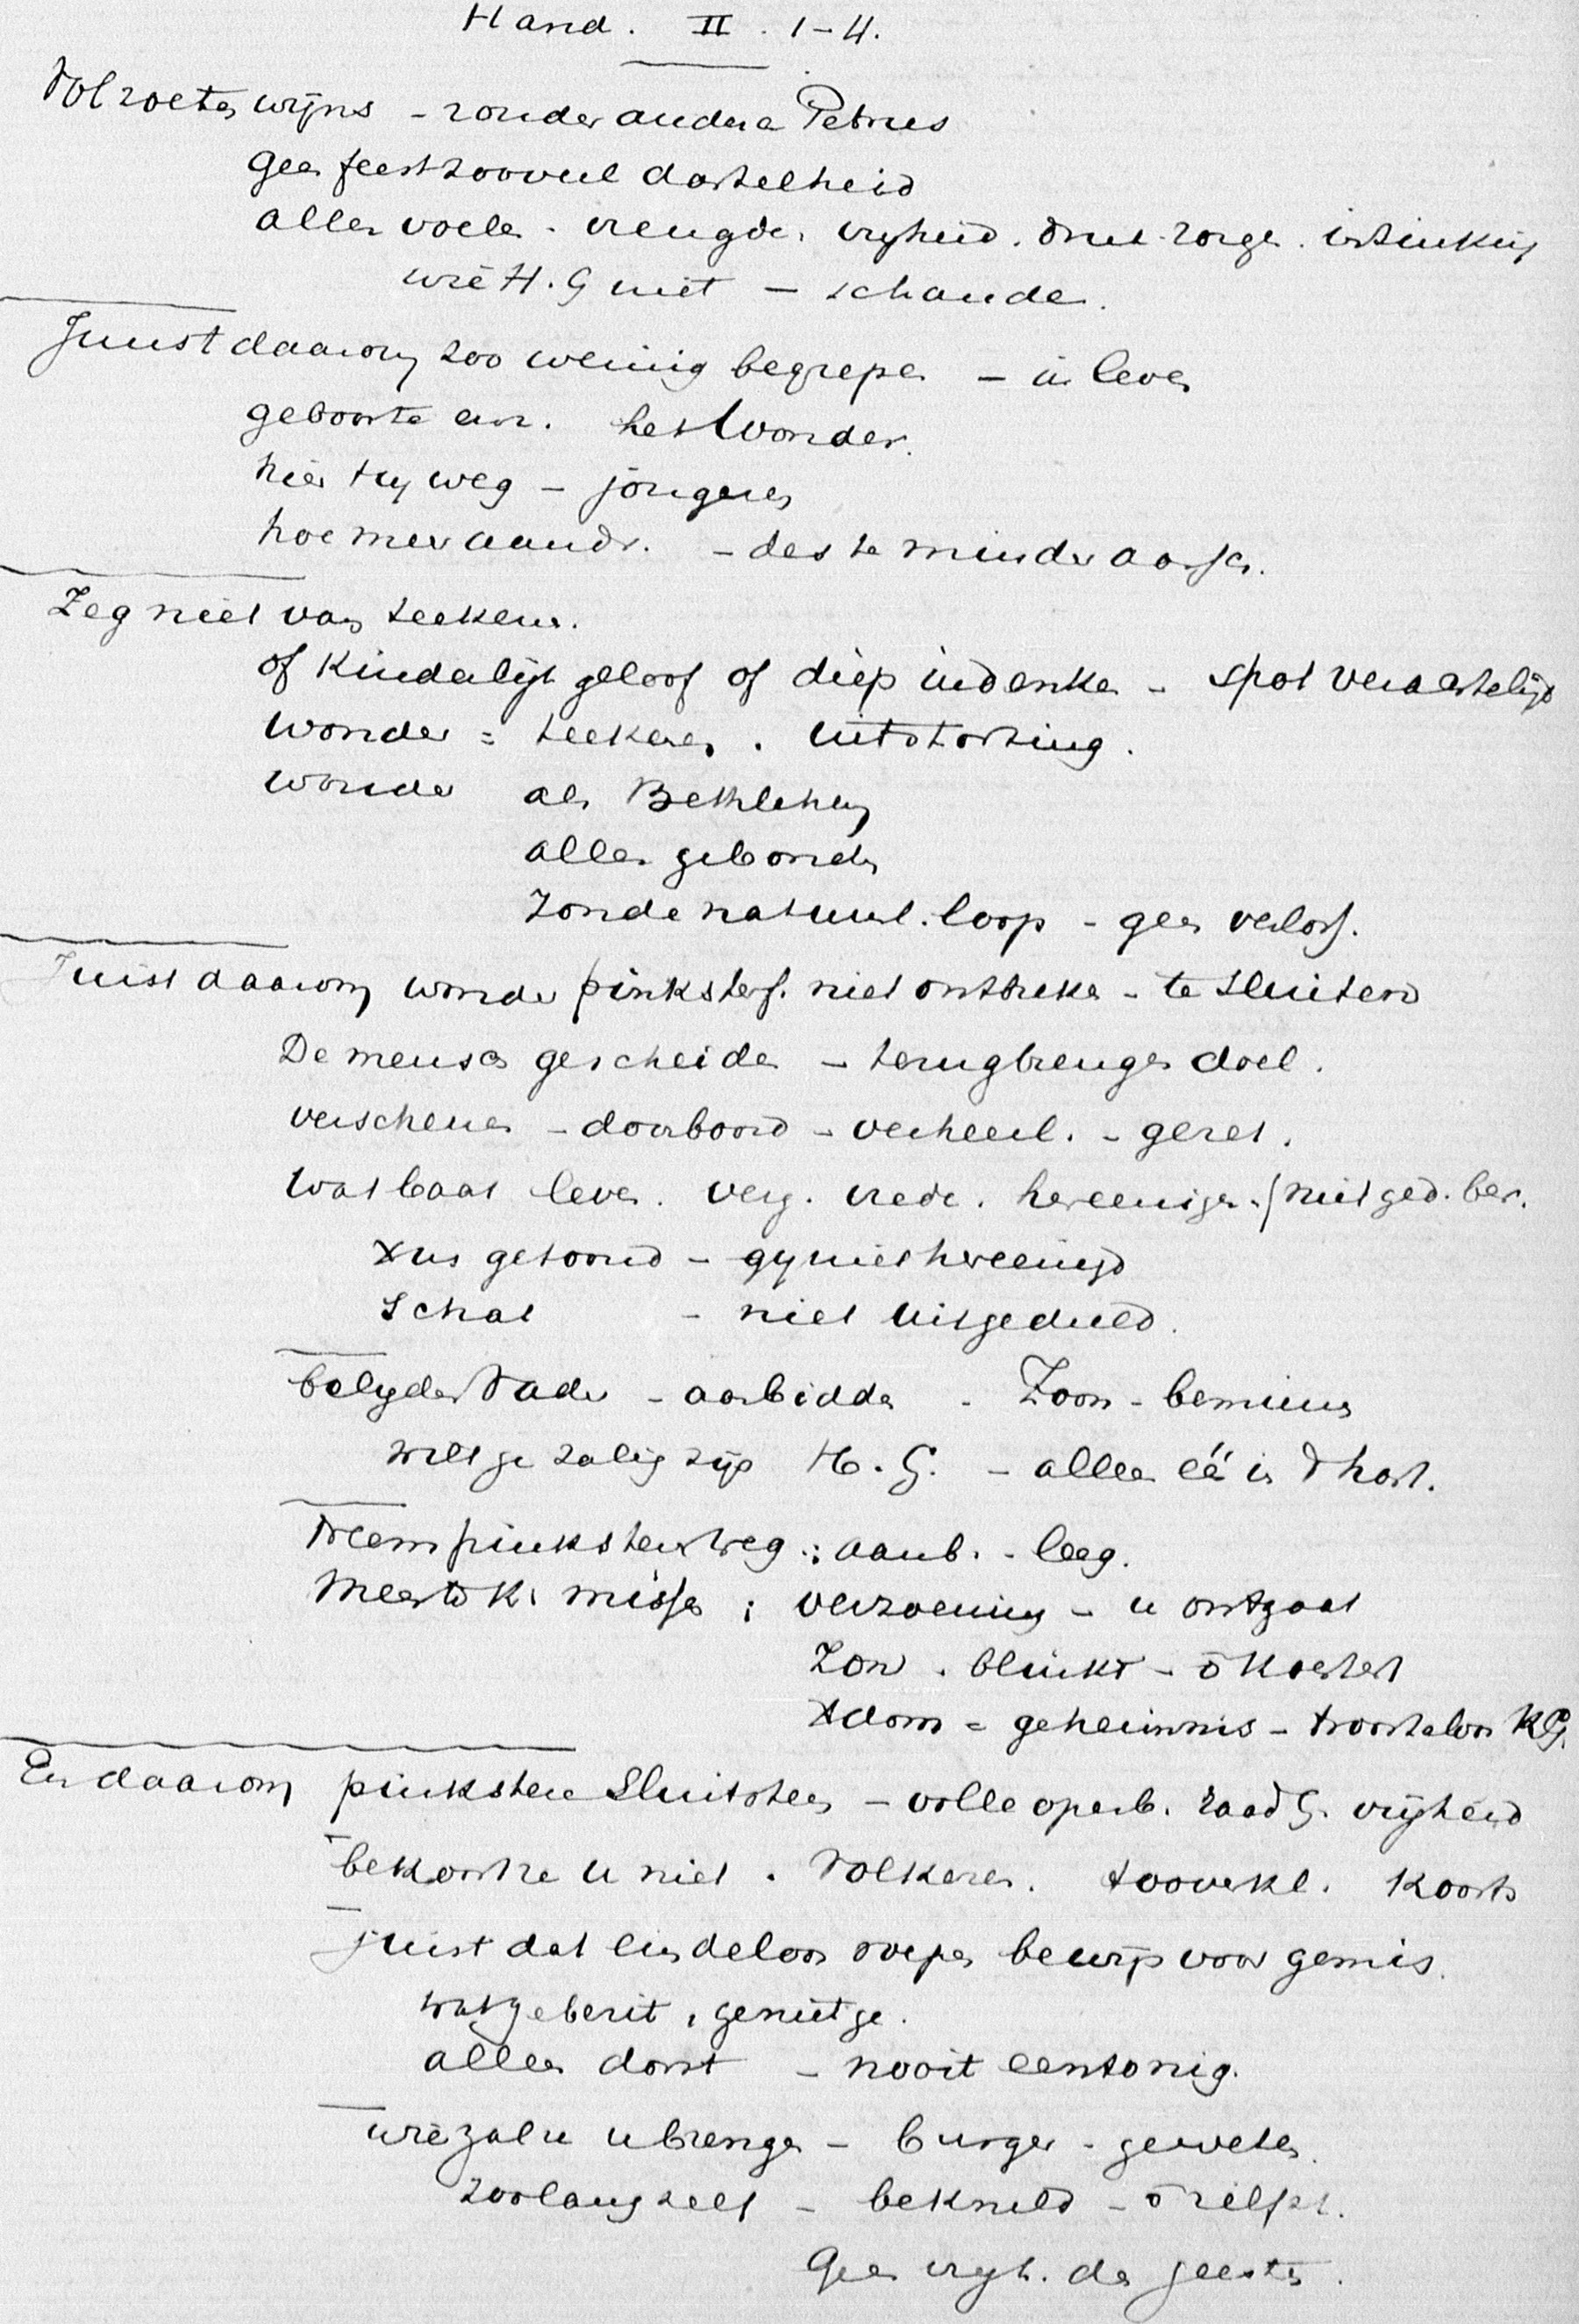 Hand. II. 1-4.
Vol zoeten wijns - zonder andere Petrus
Geen feest zooveel dartelheid
allen voelen. vreugde. vrijheid. druk. zorgen.
wie H. G niet - schande.
Juist daarom zoo weinig begrepen - in leven
geboorte enz. het wonder.
hier hij weg - jongeren
hoe meer aandr. - des te minder
Zeg niet van teekens.
of kinderlijk geloof of diep indenken - spot
wonder = teekenen. uitstorting.
wonder als Bethlehem
alles gebonden
Zonde natuurl. loop - geen verloss.
Juist daarom wonder pinksterf. niet ontbreken - te sluitend
De mensch gescheiden - terugbrengen doel.
verschenen - doorboord - verheerl. - gezet.
Wat baat leven. verg. vrede. hereenigen. / niet ged. ber.
Xus getoond - gij niet hereenigd
Schat - niet uitgedeeld.
belijden Vader - aanbidden - Zoon - beminnen
wilt ge zalig zijn H. G. - alleen één is hart.
Neem pinksteren weg : aanb. - leeg.
Meeste K. missen ; verzoening - u ontgaat
Zon. blinkt - koestert
Xdom = geheimnis - troosteloos
En daarom pinksteren Sluitsteen - volle openb. raad G. vrijheid
bekoorde u niet. Volkeren. tooverkl. koorts
juist dat eindeloos roepen bewijs voor gemis.
wat ge bezit, geniet ge.
alleen dorst - nooit eentonig.
wie zal u brengen - burger - geweten.
Zoolang zelf - bekneld -
Geen vrijh. der geesten.